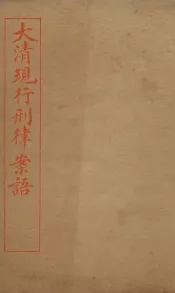 大清現行刑律案語